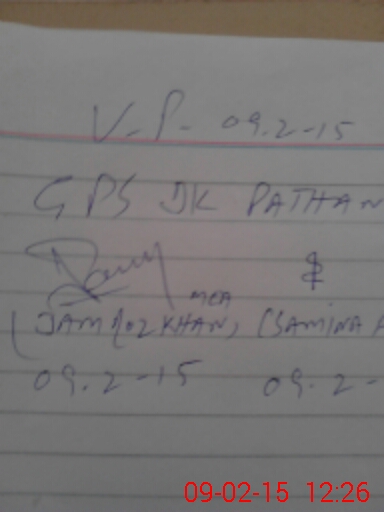 V-P- 09.2-15
GPS DK PATHAN
MEA
KHAN) (SAMINA
09.2-15 09.2-
09-02-15 12:26